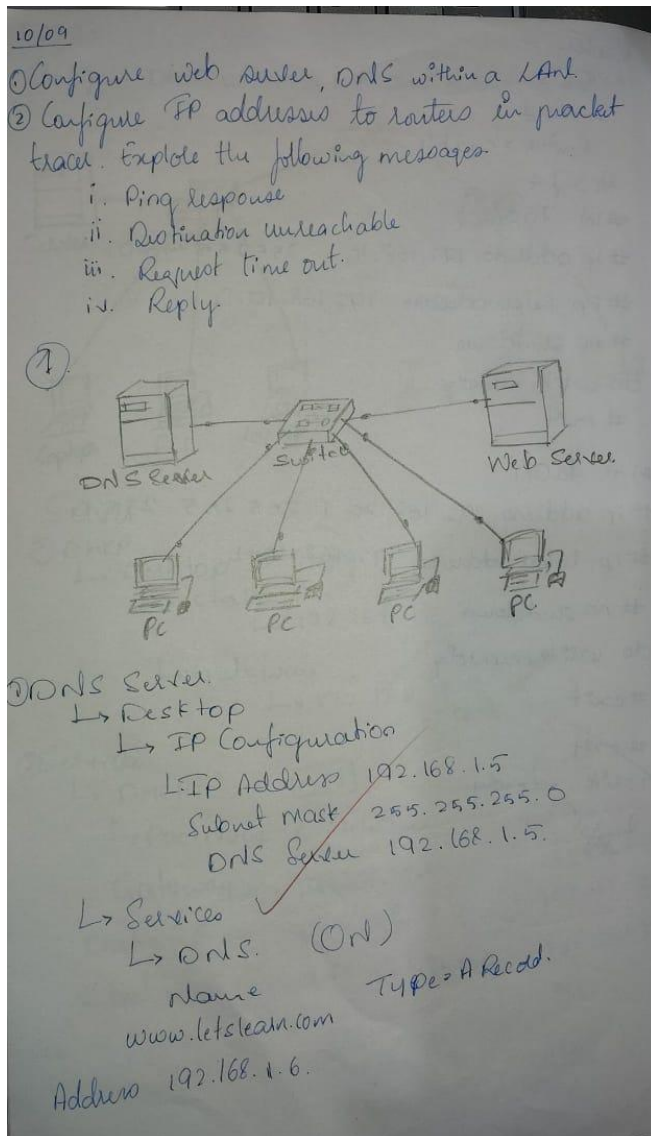 10/09
① Configure web server, DNS within a LAN.
② Configure IP addresses to routers in packet
tracer. Explore the following messages.
i. Ping response
ii. Destination unreachable
iii. Request time out.
iv. Reply.
①.
DNS Server
Switch
Web Server.
PC
PC
PC
PC
① DNS Server.
↳ Desktop
↳ IP Configuration
↳ IP Address 192.168.1.5
Subnet Mask 255.255.255.0
DNS Server 192.168.1.5.
↳ Services
↳ DNS. (ON)
Name Type = A Record.
www.letslearn.com
Address 192.168.1.6.